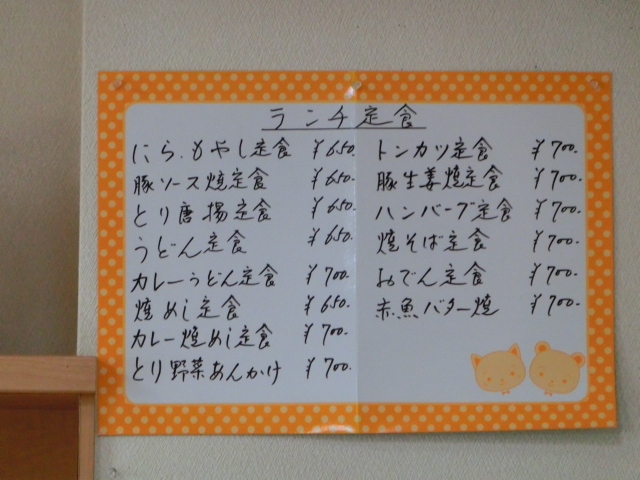 ランチ定食
にら.もやし定食 ¥650.
豚ソース焼定食 ¥650.
とり唐揚定食 ¥650.
うどん定食 ¥650.
カレーうどん定食 ¥700.
焼めし定食 ¥650.
カレー焼めし定食 ¥700.
とり野菜あんかけ ¥700.
トンカツ定食 ¥700.
豚生姜焼定食 ¥700.
ハンバーグ定食 ¥700.
焼そば定食 ¥700.
おでん定食 ¥700.
赤魚バター焼 ¥700.